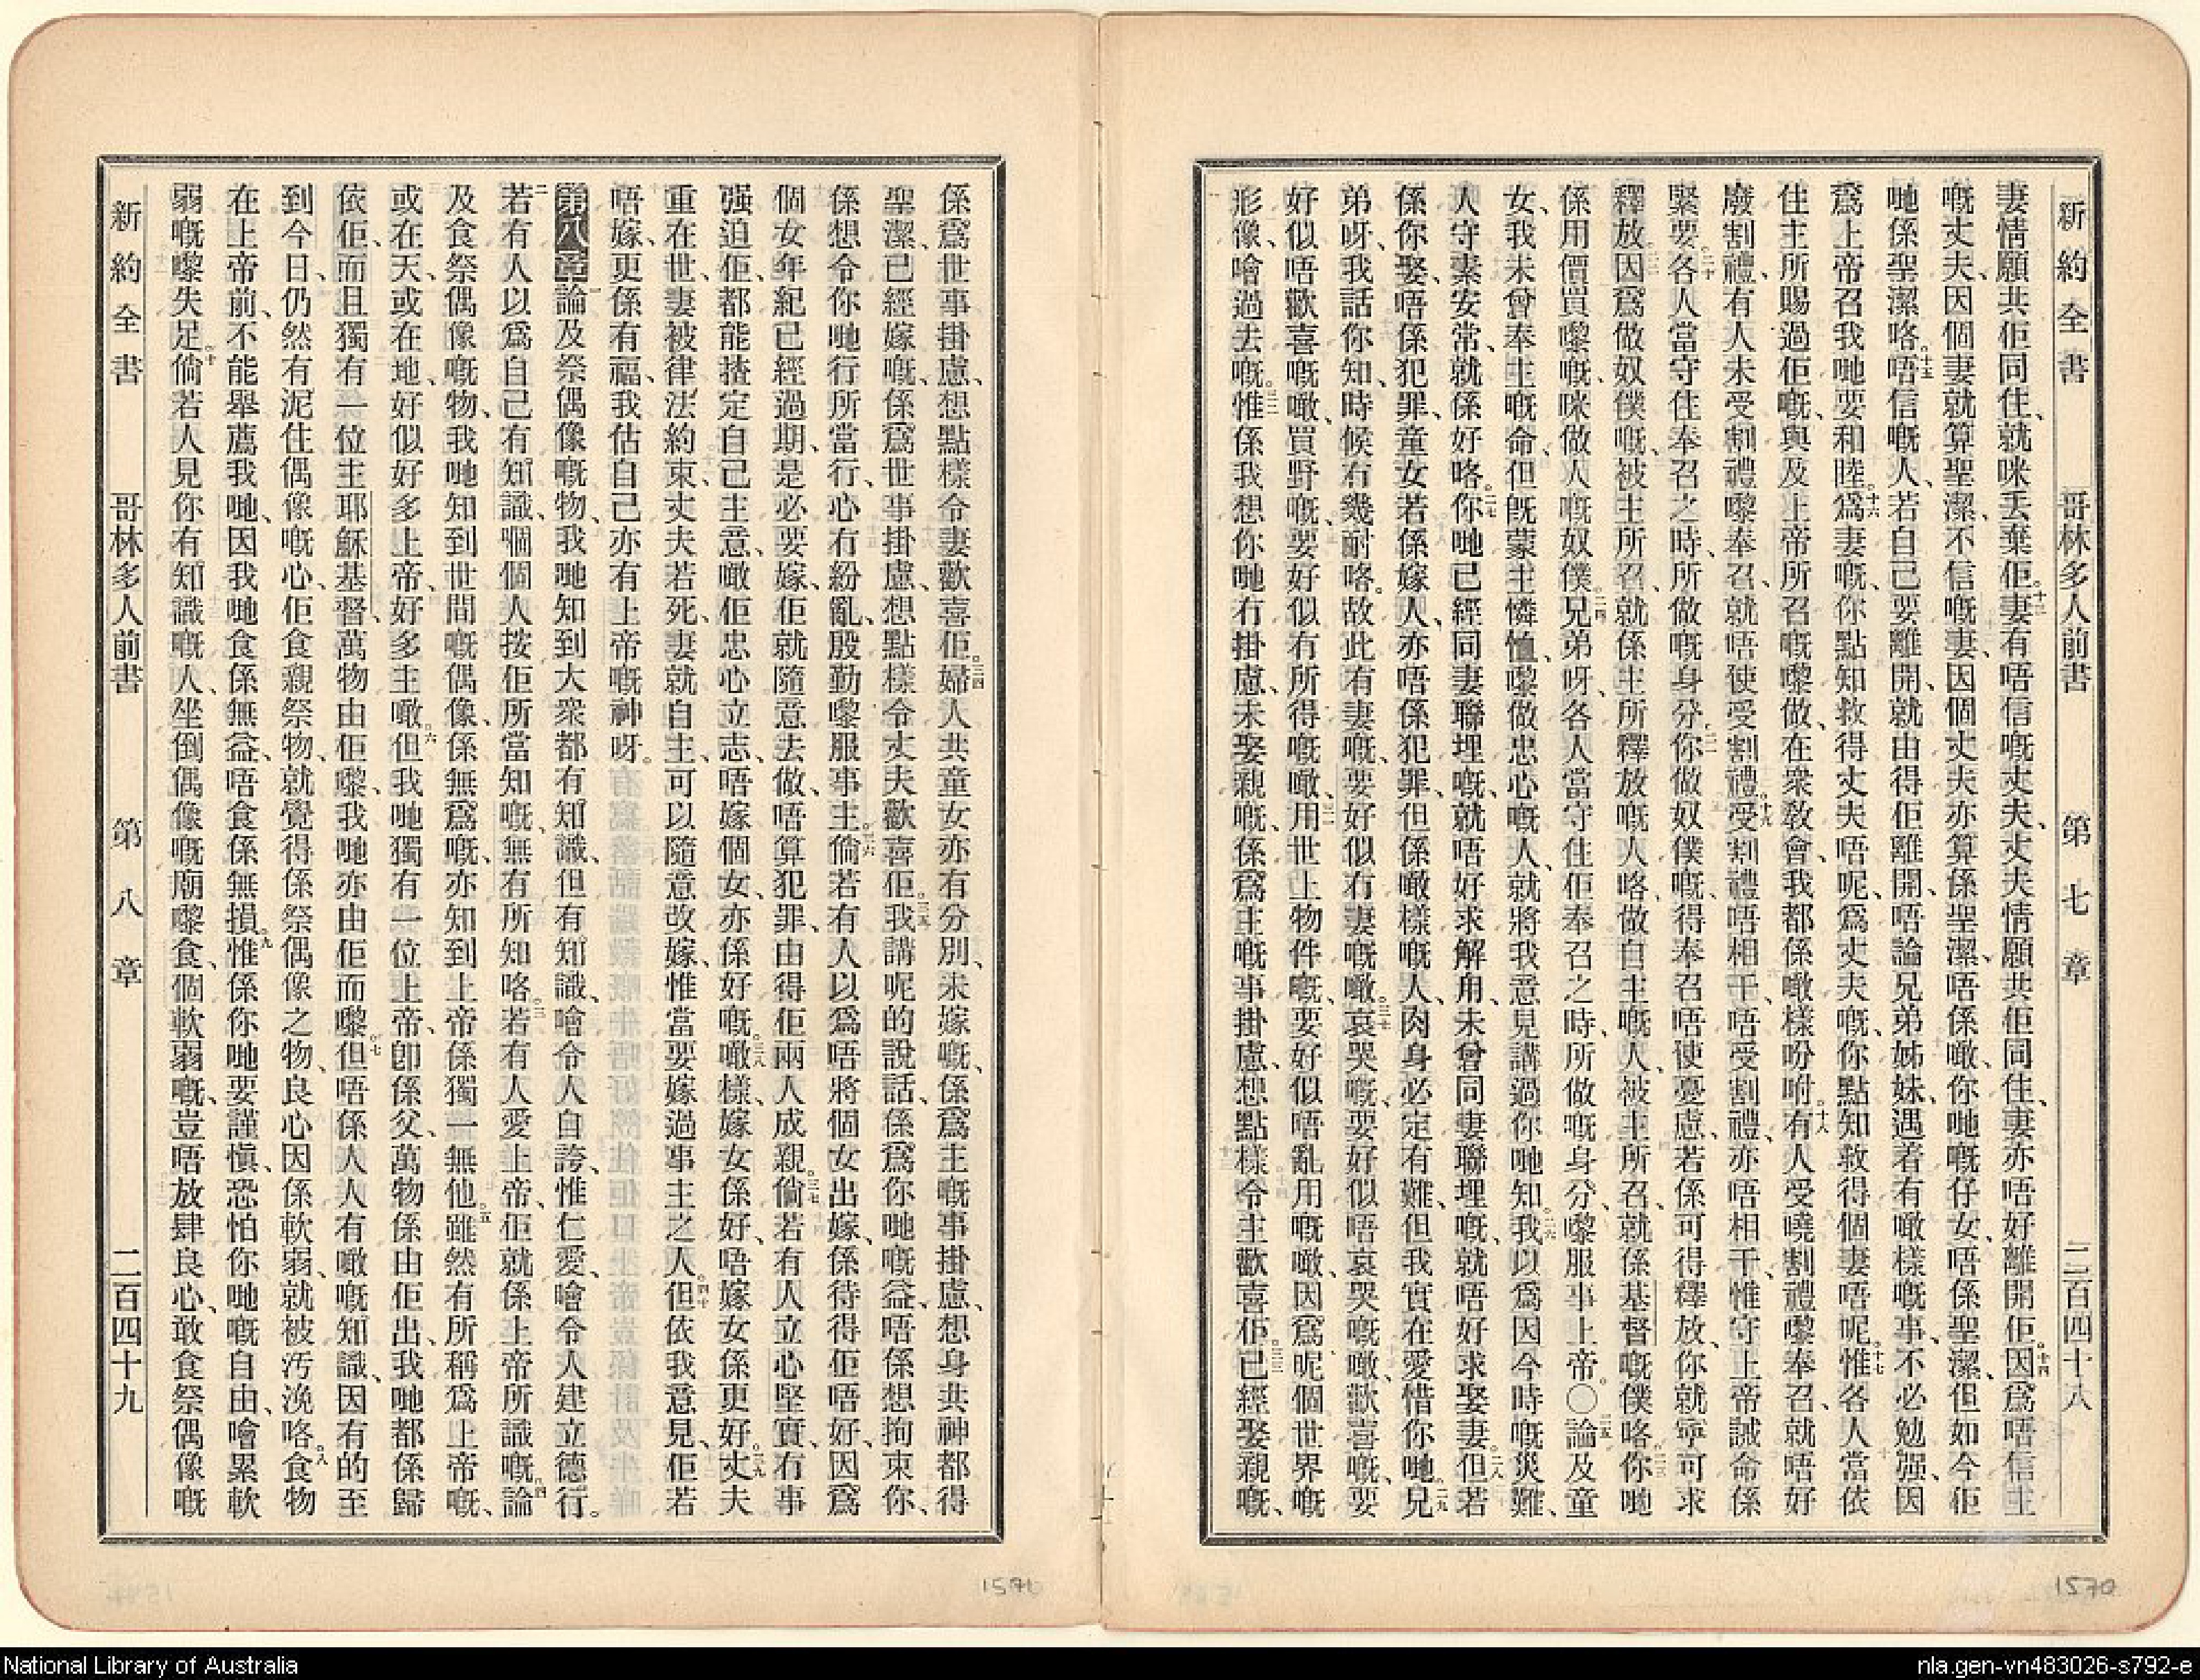 新約全書 哥林多人前書 第七章 二百四十八
妻情願共佢同住、就咪丟棄佢。十三妻有唔信嘅丈夫、丈夫情願共佢同住、妻亦唔好離開佢。十四因爲唔信主
嘅丈夫、因個妻就算聖潔、不信嘅妻、因個丈夫亦算係聖潔、唔係噉、你哋嘅仔女、唔係聖潔、但如今佢
哋係聖潔咯。十五唔信嘅人、若自己要離開、就由得佢離開、唔論兄弟姊妹、遇着有噉樣嘅事、不必勉强、因
爲上帝召我哋要和睦。十六爲妻嘅、你點知救得丈夫唔呢、爲丈夫嘅、你點知救得個妻唔呢。十七惟各人當依
住主所賜過佢嘅、與及上帝所召嘅嚟做、在衆敎會、我都係噉樣吩咐。十八有人受曉割禮嚟奉召、就唔好
廢割禮、有人未受割禮嚟奉召、就唔使受割禮。十九受割禮唔相干、唔受割禮、亦唔相干、惟守上帝誡命係
緊要。二十各人當守住奉召之時、所做嘅身分。二一你做奴僕嘅、得奉召唔使憂慮、若係可得釋放、你就寧可求
釋放。二二因爲做奴僕嘅、被主所召、就係主所釋放嘅人咯、做自主嘅人、被主所召、就係基督嘅僕咯。二三你哋
係用價買嚟嘅、咪做人嘅奴僕。二四兄弟呀、各人當守住佢奉召之時、所做嘅身分、嚟服事上帝。〇二五論及童
女、我未曾奉主嘅命、但既蒙主憐恤、嚟做忠心嘅人、就將我意見講過你哋知。二六我以爲因今時嘅災難、
人守素安常、就係好咯。二七你哋已經同妻聯埋嘅、就唔好求解用、未曾同妻聯埋嘅、就唔好求娶妻。二八但若
係你娶、唔係犯罪、童女若係嫁人、亦唔係犯罪、但係噉樣嘅人、肉身必定有難、但我實在愛惜你哋。二九兄
弟呀、我話你知、時候冇幾耐咯。故此有妻嘅、要好似冇妻嘅噉。三十哀哭嘅、要好似唔哀哭嘅噉、歡喜嘅、要
好似唔歡喜嘅噉、買野嘅、要好似冇所得嘅噉、三一用世上物件嘅、要好似唔亂用嘅噉、因爲呢個世界嘅
形像、噲過去嘅。三二惟係我想你哋冇掛慮、未娶親嘅、係爲主嘅事掛慮、想點樣令主歡喜佢。三三已經娶親嘅、
係爲世事掛慮、想點樣令妻歡喜佢。三四婦人共童女亦有分別、未嫁嘅、係爲主嘅事掛慮、想身共神都得
聖潔、已經嫁嘅、係爲世事掛慮、想點樣令丈夫歡喜佢。三五我講呢的說話、係爲你哋嘅益、唔係想拘束你、
係想令你哋行所當行、心冇紛亂、殷勤嚟服事主。三六倘若有人以爲唔將個女出嫁、係待得佢唔好、因爲
個女年紀已經過期、是必要嫁、佢就隨意去做、唔算犯罪、由得佢兩人成親。三七倘若有人立心堅實、有事
强迫佢、都能揸定自己主意、噉佢忠心立志、唔嫁個女、亦係好嘅。三八噉樣、嫁女係好、唔嫁女係更好。三九丈夫
重在世、妻被律法約束、丈夫若死、妻就自主、可以隨意改嫁、惟當要嫁過事主之人。四十但依我意見、佢若
唔嫁、更係有福、我估自己亦有上帝嘅神呀。
第八章一論及祭偶像嘅物、我哋知到大衆都有知識、但有知識、噲令人自誇、惟仁愛、噲令人建立德行。
二若有人以爲自己有知識、嗰個人按佢所當知嘅、無有所知咯。三若有人愛上帝、佢就係上帝所識嘅。四論
及食祭偶像嘅物、我哋知到世間嘅偶像、係無爲嘅、亦知到上帝係獨一無他。五雖然有所稱爲上帝嘅、
或在天、或在地、好似好多上帝、好多主噉。六但我哋獨有一位上帝、卽係父、萬物係由佢出、我哋都係歸
依佢、而且獨有一位主耶穌基督、萬物由佢嚟、我哋亦由佢而嚟。七但唔係人人有噉嘅知識、因有的至
到今日、仍然有泥住偶像嘅心、佢食親祭物、就覺得係祭偶像之物、良心因係軟弱、就被汚浼咯。八食物
在上帝前、不能舉薦我哋、因我哋食係無益、唔食係無損。九惟係你哋要謹愼、恐怕你哋嘅自由、噲累軟
弱嘅嚟失足。十倘若人見你有知識嘅人、坐倒偶像嘅廟嚟食、個軟弱嘅、豈唔放肆良心、敢食祭偶像嘅
新約全書 哥林多人前書 第八章 二百四十九
1571
1570
National Library of Australia
nla.gen-vn483026-s792-e